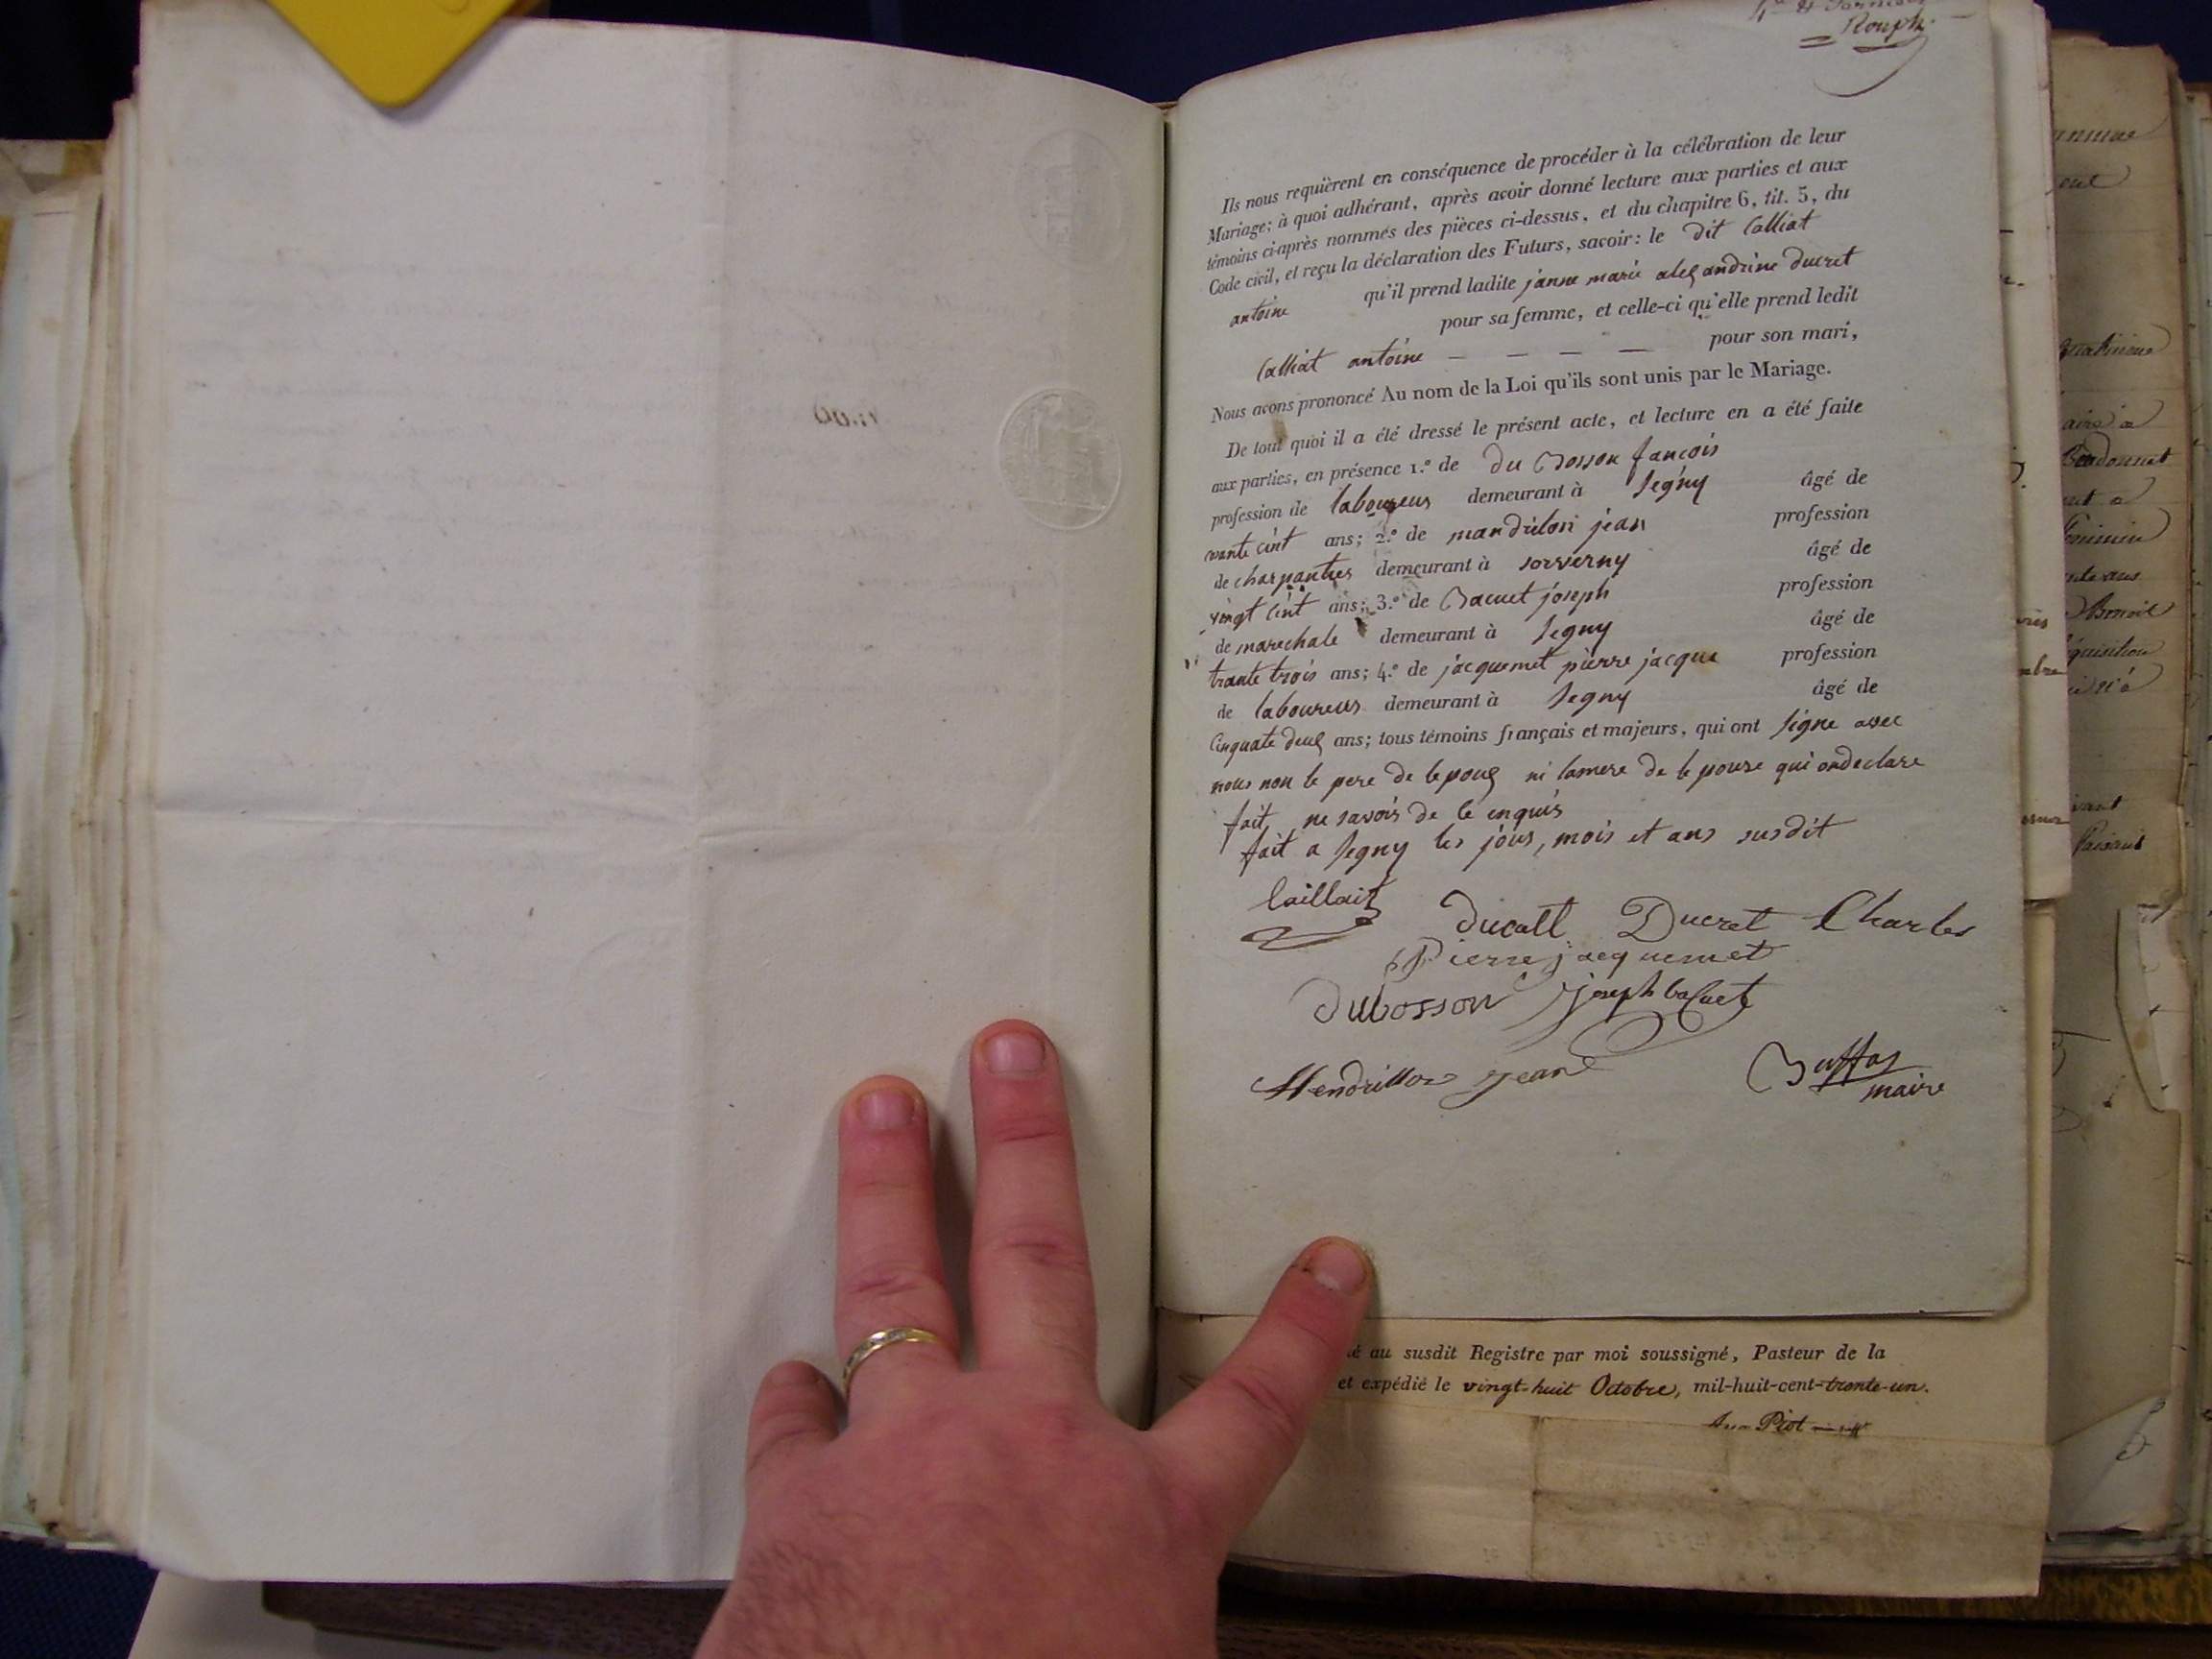 Rouph
Ils nous requièrent en conséquence de procéder à la célébration de leur
Mariage; à quoi adhérant, après avoir donné lecture aux parties et aux
témoins ci-après nommés des pièces ci-dessus, et du chapitre 6, tit. 5, du
Code civil, et reçu la déclaration des Futurs, savoir: le dit Calliat
antoine qu'il prend ladite janne marie alexandrine ducret
pour sa femme, et celle-ci qu'elle prend ledit
Calliat antoine — — — — pour son mari,
Nous avons prononcé Au nom de la Loi qu'ils sont unis par le Mariage.
De tout quoi il a été dressé le présent acte, et lecture en a été faite
aux parties, en présence 1.º de du Bosson fancois
profession de laboureus demeurant à Segny âgé de
cint ans; 2.º de mandrilon jean profession
de charpanties demeurant à sorverny âgé de
vingt cint ans; 3.º de Bacuet joseph profession
de marechale demeurant à Segny âgé de
trante trois ans; 4.º de jacquemet pierre jacque profession
de laboureus demeurant à Segny âgé de
Cinquate deux ans; tous témoins français et majeurs, qui ont signe avec
nous non le pere de lepoux ni lamere de lepouse qui ondeclare
fait ne savois de le enquis
fait a Segny les jous, mois et ans susdit
Caillait
Ducret Charles
Pierre jacquemet
dubosson joseph bacuet
Mendrillon jean
maire
é au susdit Registre par moi soussigné, Pasteur de la
et expédié le vingt-huit Octobre, mil-huit-cent-trente-un.
Piot